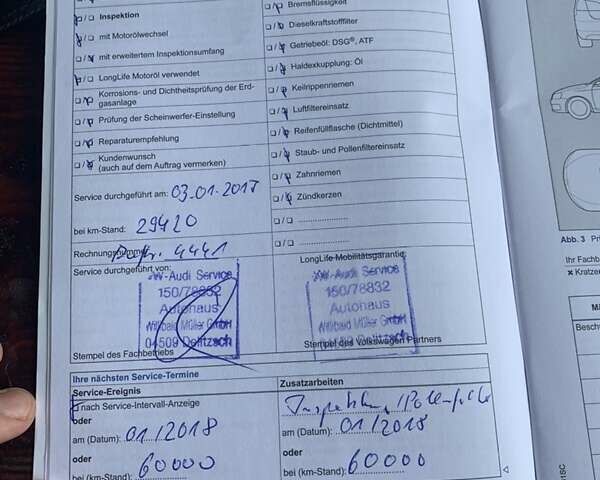 Inspektion
mit Motorölwechsel
mit erweitertem Inspektionsumfang
LongLife Motoröl verwendet
Korrosions- und Dichtheitsprüfung der Erd-
gasanlage
Prüfung der Scheinwerfer-Einstellung
Reparaturempfehlung
Kundenwunsch
(auch auf dem Auftrag vermerken)
Service durchgeführt am: 03.01.2017
bei km-Stand: 29420
Rechnungsnummer: 4441
Service durchgeführt von:
VW-Audi Service
150/78832
Autohaus
Willibald Müller GmbH
04509 Delitzsch
Stempel des Fachbetriebs
Bremsflüssigkeit
Dieselkraftstofffilter
Getriebeöl: DSG®, ATF
Haldexkupplung: Öl
Keilrippenriemen
Luftfiltereinsatz
Reifenfüllflasche (Dichtmittel)
Staub- und Pollenfiltereinsatz
Zahnriemen
Zündkerzen
LongLife Mobilitätsgarantie
VW-Audi Service
150/78832
Autohaus
Willibald Müller GmbH
04509 Delitzsch
Stempel des Volkswagen Partners
Ihre nächsten Service-Termine
Service-Ereignis
nach Service-Intervall-Anzeige
oder
am (Datum): 01/2018
oder
bei (km-Stand): 60000
Zusatzarbeiten
am (Datum): 01/2018
oder
bei (km-Stand): 60000
Abb. 3
Ihr Fachb
× Kratzer
Beschr